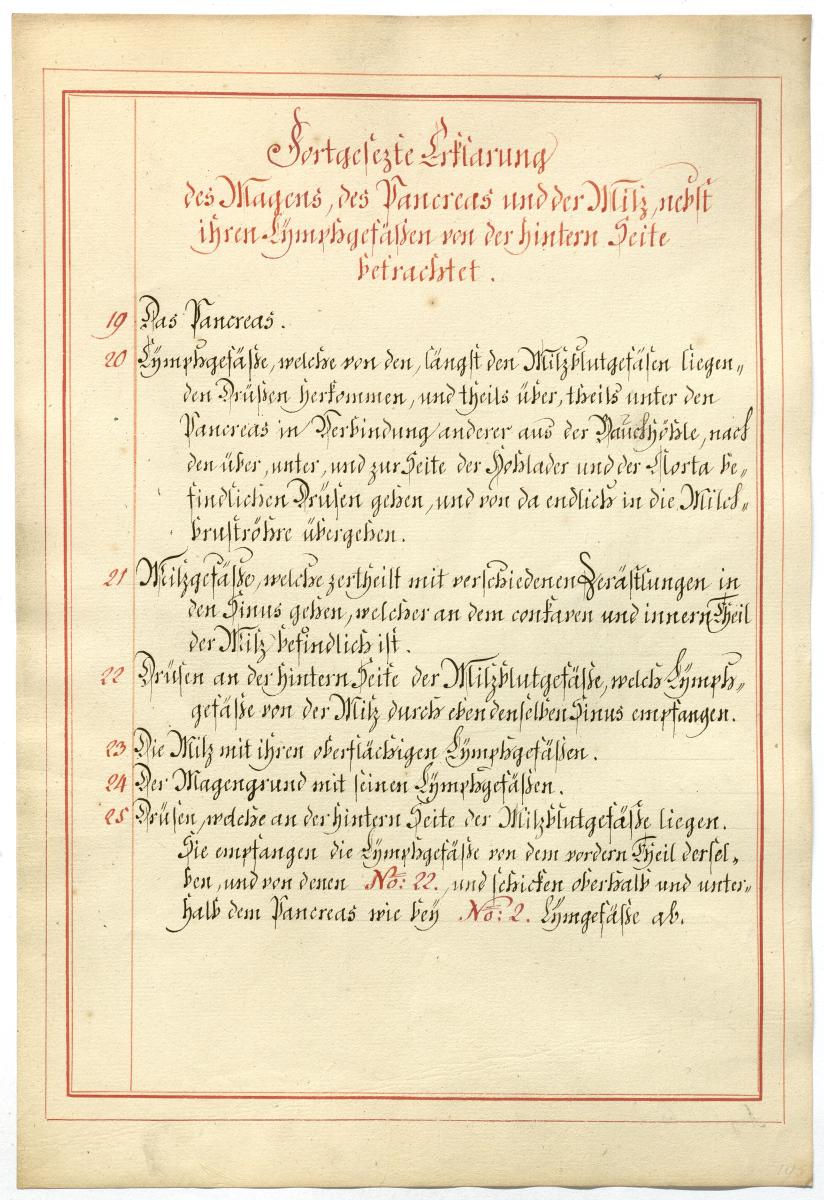 Fortgesezte Erklarung
des Magens, des Pancreas und der Milz, nebst
ihren Lÿmphgefäßen von der hintern Seite
betrachtet.
19 Das Pancreas.
20 Lÿmphgefäße, welche von den, längst den Milzblutgefäsen liegen„
den Drüßen herkommen, und theils über, theils unter den
Pancreas in Verbindung anderer aus der Bauchhöhle, nach
den über, unter, und zur Seite der Hohlader und der Aorta be„
findlichen Drüsen gehen, und von da endlich in die Milch„
bruströhre übergehen.
21 Milzgefäße, welche zertheilt mit verschiedenen Zerästlungen in
den Sinus gehen, welcher an dem conkaven und innern Theil
der Milz befindlich ist.
22 Drüsen an der hintern Seite der Milzblutgefäße, welch Lÿmph„
gefäße von der Milz durch eben denselben Sinus empfangen.
23 Die Milz mit ihren oberflächigen Lÿmphgefäßen.
24 Der Magengrund mit seinen Lÿmphgefäßen.
25 Drüsen, welche an der hintern Seite der Milzblutgefäße liegen.
Sie empfangen die Lÿmphgefäße von dem vordern Theil dersel„
ben, und von denen No: 22. und schicken oberhalb und unter„
halb dem Pancreas wie beÿ No: 2. Lÿmgefäße ab.